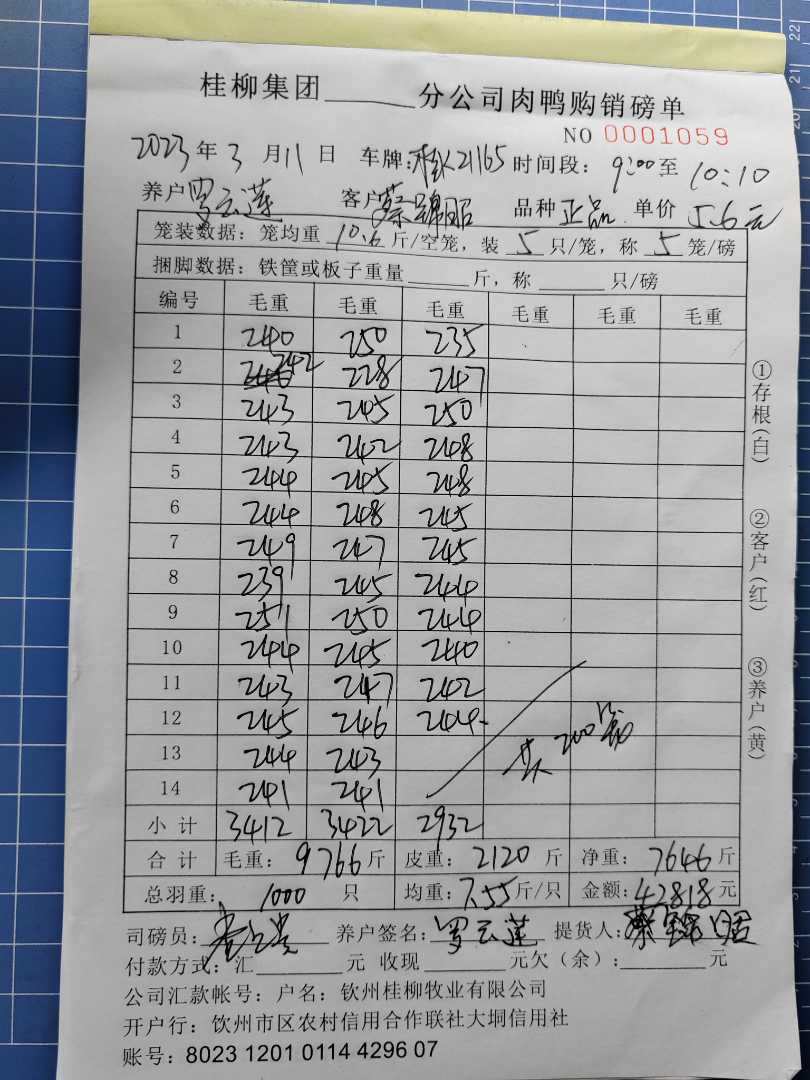 桂柳集团______分公司肉鸭购销磅单
NO 0001059
2023年3月11日 车牌:桂K21165 时间段:9:00至10:10
养户罗云莲 客户蔡锦昭 品种正品 单价5.6元
笼装数据:笼均重10.6斤/空笼,装5只/笼,称5笼/磅
捆脚数据:铁筐或板子重量______斤,称______只/磅
编号 毛重 毛重 毛重 毛重 毛重 毛重
1 240 250 235
2 242 228 247
3 243 245 250
4 243 242 248
5 244 245 248
6 244 248 245
7 249 247 245
8 239 245 244
9 251 250 244
10 244 245 240
11 243 247 242
12 245 246 244
13 244 243
14 241 241
共200笼
小计 3412 3422 2932
合计 毛重:9766斤 皮重:2120斤 净重:7646斤
总羽重:1000只 均重:7.55斤/只 金额:42818元
司磅员: 养户签名:罗云莲 提货人:蔡锦昭
付款方式:汇______元 收现______元欠(余):______元
公司汇款帐号:户名:钦州桂柳牧业有限公司
开户行:钦州市区农村信用合作联社大垌信用社
账号:8023 1201 0114 4296 07
①存根(白)
②客户(红)
③养户(黄)
22
21
20
19